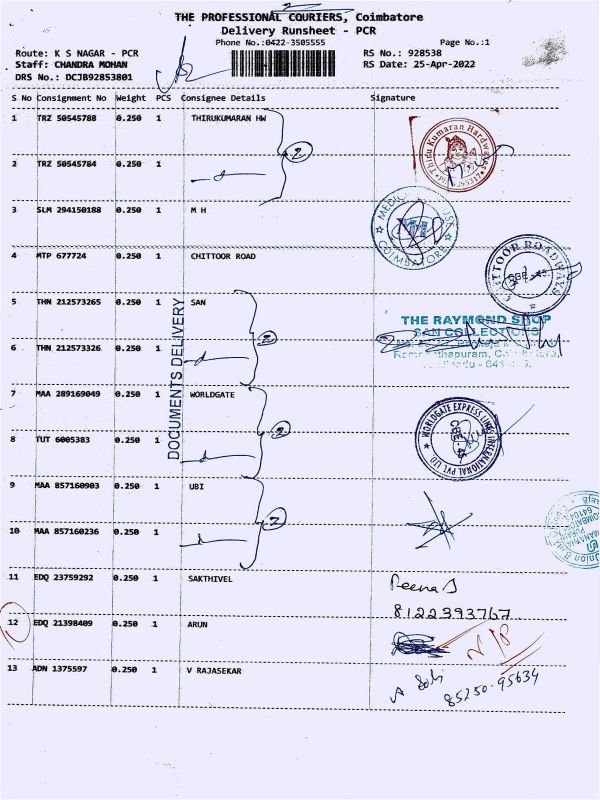 THE PROFESSIONAL COURIERS, Coimbatore
Delivery Runsheet - PCR
Phone No.:0422-3505555 Page No.:1
Route: K S NAGAR - PCR RS No.: 928538
Staff: CHANDRA MOHAN RS Date: 25-Apr-2022
DRS No.: DCJB92853801
S No Consignment No Weight PCS Consignee Details Signature
1 TRZ 50545788 0.250 1 THIRUKUMARAN HW
2
Thiru Kumaran Hardwares
2 TRZ 50545784 0.250 1
3 SLM 294150188 0.250 1 M H
COIMBATORE
4 MTP 677724 0.250 1 CHITTOOR ROAD
CHITTOOR ROADWAYS
CBE - 45.
DOCUMENTS DELIVERY
5 THN 212573265 0.250 1 SAN
2
THE RAYMOND SHOP
SAN COLLECTIONS
6 THN 212573326 0.250 1
7 MAA 289169049 0.250 1 WORLDGATE
2
WORLDGATE EXPRESS LINES INTERNATIONAL PVT. LTD
CBE - 45
8 TUT 6005383 0.250 1
9 MAA 857160903 0.250 1 UBI
2
Union
10 MAA 857160236 0.250 1
11 EDQ 23759292 0.250 1 SAKTHIVEL
8122393767
12 EDQ 21398409 0.250 1 ARUN
13 ADN 1375597 0.250 1 V RAJASEKAR
85250-95634